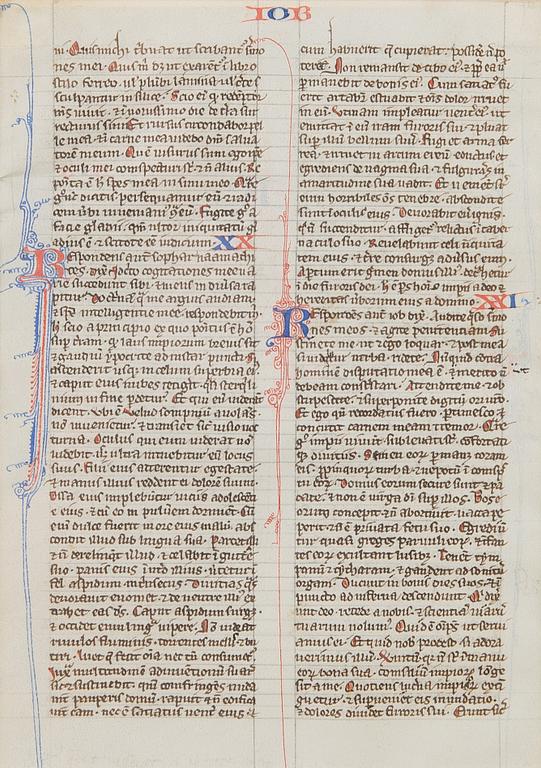 IOB
m. Quis michi tribuat ut scribantur sermo
nes mei. Quis m det ut exarentur i libro
stilo ferreo. ul plumbi lamina uel certe
sculpantur in silice. Scio enim quod redemptor
ms uiuit. et in nouissimo die de terra sur
recturus sim. Et rursus circundabor pel
le mea. et in carne mea uidebo deum salua
torem meum. Quem uisurus sum ego ipse
et oculi mei conspecturi sunt et non alius. Re
posita est hec spes mea in sinu meo. Quare
ergo nunc dicitis persequamur eum et radi
cem uerbi inueniamus contra eum. Fugite ergo a
facie gladii. quoniam ultor iniquitatum gla
dius est. et scitote esse iudicium. XX
Respondens autem sophar naamathi
tes. dixit. Idcirco cogitationes mee ua
rie succedunt sibi. et mens in diuersa ra
pitur. Doctrinam qua me arguis audiam.
et spiritus intelligentie mee respondebit michi.
hoc scio a principio ex quo positus est homo
super terram. quod laus impiorum breuis sit
et gaudium ypocrite ad instar puncti. Si
ascenderit usque in celum superbia eius
et caput eius nubes tetigerit. quasi sterquili
nium in fine perdetur. Et qui eum uiderant
dicent. ubi est. Velud sompnium auolans
non inuenietur. et transiet sic uisio noc
turna. Oculus qui eum uiderat non
uidebit. neque ultra intuebitur eum locus
suus. Filii eius atterentur egestate.
et manus illius reddent ei dolorem suum.
Ossa eius implebuntur uiciis adolescentie
eius. et cum eo in puluere dormient. Cum
enim dulce fuerit in ore eius malum. abs
condet illud sub lingua sua. Parcet illi
et non derelinquet illud. et celabit in guttu
re suo. panis eius in utero illius uertetur in
fel aspidum intrinsecus. Diuitias quas
deuorauit euomet. et de uentre illius ex
trahet eas deus. Caput aspidum surget
et occidet eum lingua uipere. Non uideat
riuulos fluminis. torrentes mellis et bu
tiri. Luet que fecit omnia nec tamen consumetur.
Iuxta multitudinem adinuentionum suarum
sic et sustinebit. quoniam confringens nuda
uit pauperis domum. rapuit et non edifica
uit eam. nec est satiatus uenter eius. et
cum habuerit que cupierat. possidere non po
terit. Non remansit de cibo eius. et propterea nil
permanebit de bonis eius. Cum satiatus fu
erit artabitur. estuabit et omnis dolor irruet
in eum. Utinam impleatur uenter eius. ut
emittat in eum iram furoris sui. et pluat
super illum bellum suum. Fugiet arma fer
rea. et irruet in arcum ereum. eductus et
egrediens de uagina sua. et fulgurans in
amaritudine sua. uadent et uenient super
eum horribiles. Omnes tenebre abscondite
sunt in occultis eius. Deuorabit eum ignis
qui non succenditur. affligetur relictus in taber
naculo suo. Reuelabunt celi iniquita
tem eius. et terra consurget aduersus eum.
Apertum erit germen domus illius. detrahetur in
die furoris dei. hec est pars hominis impii a deo et
hereditas uerborum eius a domino. XXI
Respondens autem iob dixit. Audite queso sermo
nes meos. et agite penitentiam. Su
stinete me ut et ego loquar. et post mea
si uidebitur uerba ridete. Nunquid contra
hominem disputatio mea est. ut merito non
debeam contristari. Attendite me et ob
stupescite. et superponite digitum ori uestro.
Et ego quando recordatus fuero pertimesco et
concutit carnem meam tremor. Quare
ergo impii uiuunt. subleuati sunt. confortati
que diuitiis. Semen eorum permanet coram
eis. propinquorum turba et nepotum in conspec
tu eorum. Domus eorum secure sunt et pa
cate. et non est uirga dei super illos. Bos e
orum concepit et non abortiuit. uacca pe
perit. et non est priuata fetu suo. Egrediun
tur quasi greges paruuli eorum. et infan
tes eorum exultant lusibus. Tenent tym
panum et cytharam. et gaudent ad sonitum
organi. Ducunt in bonis dies suos. et in
puncto ad inferna descendunt. Qui dixer
unt deo. recede a nobis. et scientiam uiarum
tuarum nolumus. Quis est omnipotens ut serui
amus ei. Et quid nobis prodest si adora
uerimus illum. Veruntamen quia non sunt in manu
eorum bona sua. consilium impiorum longe
sit a me. Quotiens lucerna impiorum exti
guetur. et superueniet eis inundatio.
et dolores diuidet furoris sui. Erunt sicut